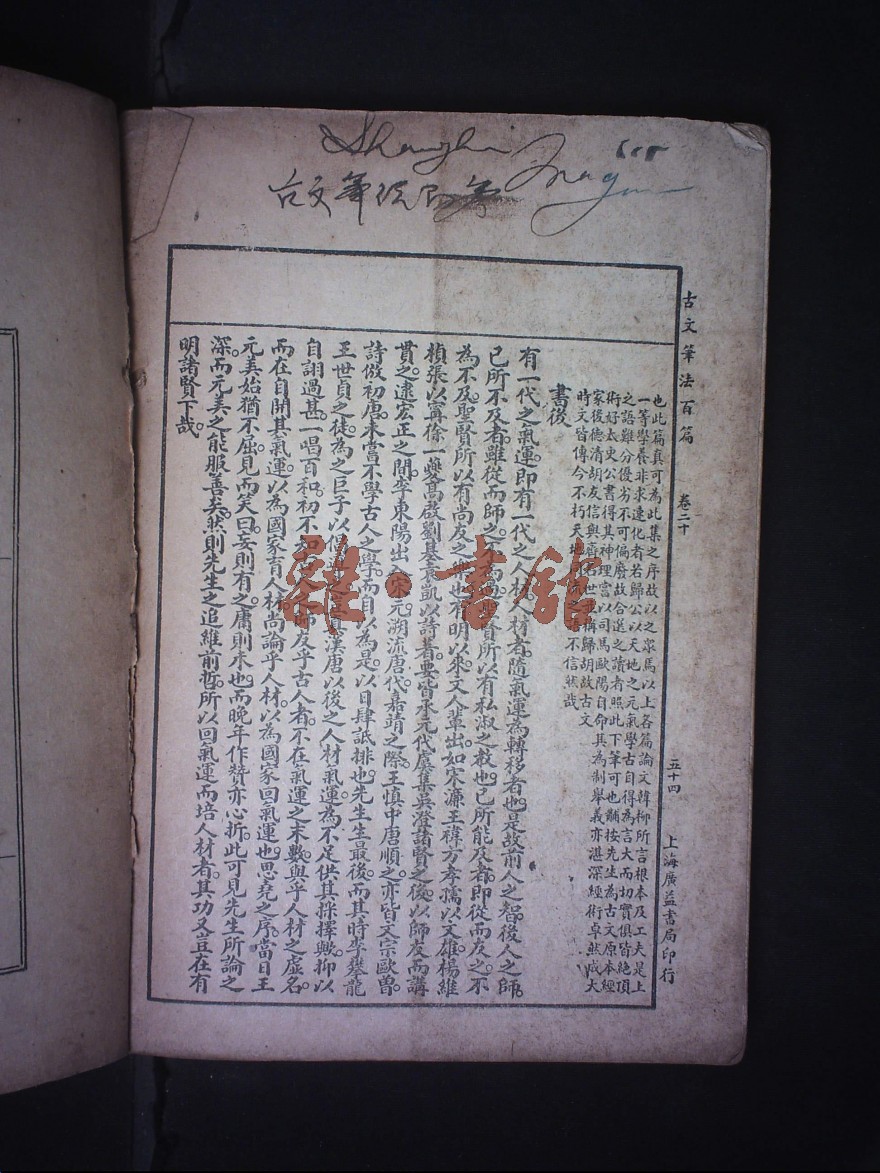 Shangha
古文筆法百篇 卷二十 五十四 上海廣益書局印行
也此篇真可為此集之序故以之眾馬以上各篇論文韓柳所言根本及工夫是上
一等學養非求速化者若歸公以天地之元氣學古自得為言大而切實俱皆絕頂
之語難分優劣不可偏廢故合選之讀者照此下筆可也黼按先生為古文原本經
術好太史公書得其神理當以司馬歐陽自命其為制舉義亦湛深經術卓然成大
家後德清胡友信與齊名世並稱歸胡故古文
時文皆傳今不朽天地不信然哉
書後
有一代之氣運即有一代之人材人材者隨氣運為轉移者也是故前人之智後人之師
已所不及者雖從而師之不為賢所以有私淑之教也已所能及者即從而友之不
為不及聖賢所以有尚友之樂也有明以來文人輩出如宋濂王禕方孝孺以文雄楊維
楨張以寧徐一夔高啟劉基袁凱以詩著要皆承元代虞集吳澄諸賢之後以師友而講
貫之逮宏正之間李東陽出入宋元溯流唐代嘉靖之際王慎中唐順之亦皆文宗歐曾
詩倣初唐未嘗不學古人之學而自以為是以日肆詆排也先生生最後而其時李攀龍
王世貞之徒為之巨子以倡其漢唐以後之人材氣運為不足供其採擇歟抑以
自詡過甚一唱百和初不知古人師友乎古人者不在氣運之末數與乎人材之虛名
而在自開其氣運以為國家育人材尚論乎人材以為國家回氣運也思堯之序當日王
元美始猶不屈見而笑曰妄則有之庸則未也而晚年作贊亦心折此可見先生所論之
深而元美之能服善矣然則先生之追維前哲所以回氣運而培人材者其功又豈在有
明諸賢下哉
雜·書館